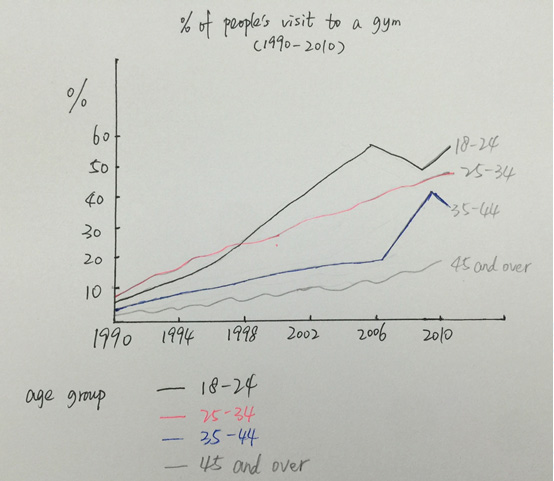 % of people's visit to a gym
(1990-2010)
%
60
50
40
30
20
10
18-24
25-34
35-44
45 and over
1990 1994 1998 2002 2006 2010
age group
18-24
25-34
35-44
45 and over